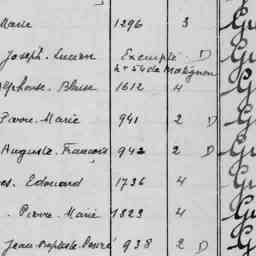 Marie 1296 3
Joseph-Lucien Exempté D
4 + 54 de Matignon
Alphonse-Blaise 1612 4
Pierre-Marie 941 2 D
Auguste-François 942 2 D
Edouard 1736 4
Pierre-Marie 1823 4
Jean-Baptiste 938 2 D